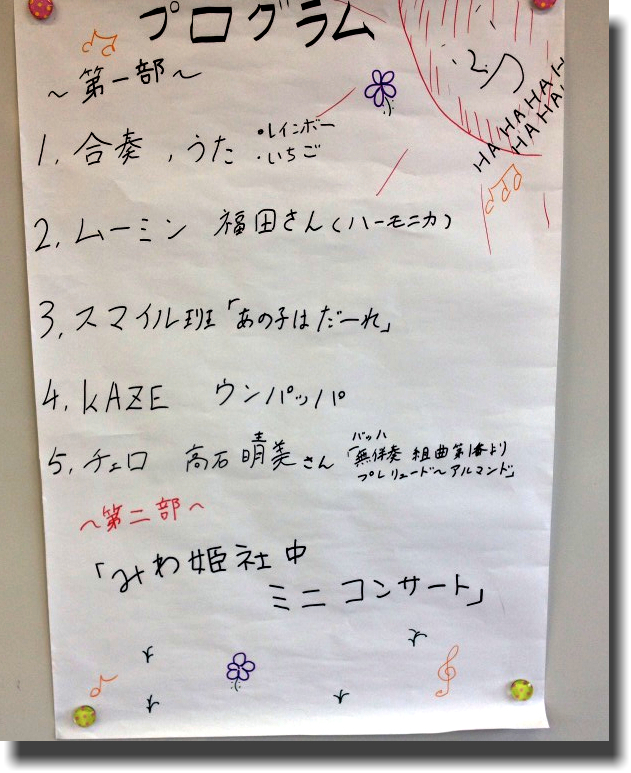 プログラム
～第一部～
1. 合奏,うた ・レインボー
・いちご
2. ムーミン 福田さん(ハーモニカ)
3. スマイル班「あの子はだーれ」
4. KAZE ウンパッパ
5. チェロ 高石晴美さん バッハ「無伴奏 組曲第1番より
プレリュード～アルマンド」
～第二部～
「みわ姫社中
ミニコンサート」
HAHAHAH
HAHA